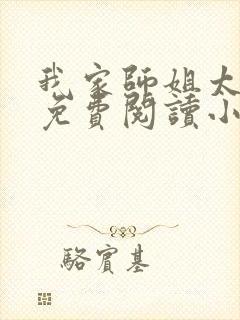 我家師姐太
免費閱讀小
駱賓基